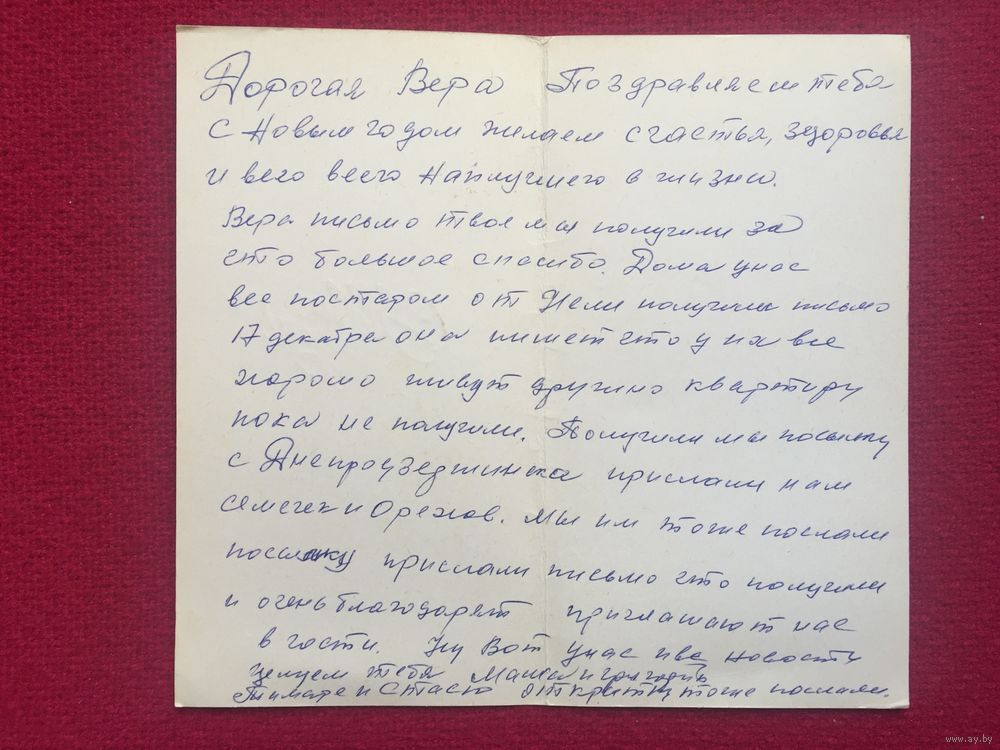 Дорогая Вера Поздравляем тебя
с Новым годом желаем счастья, здоровья
и всего всего Наилучшего в жизни.
Вера письмо твое мы получили за
что большое спасибо. Дома у нас
все постаром от Нели получили письмо
17 декабря она пишет что у них все
хорошо живут другино квартиру
пока не получили. Получили мы посылку
с Днепроузержинска прислали нам
семечек и Орехов. Мы им тоже послали
посылку прислали письмо что получили
и очень благодарят приглашают нас
в гости. Ну Вот у нас и все новости
целуем тебя Маша и Григорий
Тамаре и Стасю открытку тоже послали.
www.ay.by